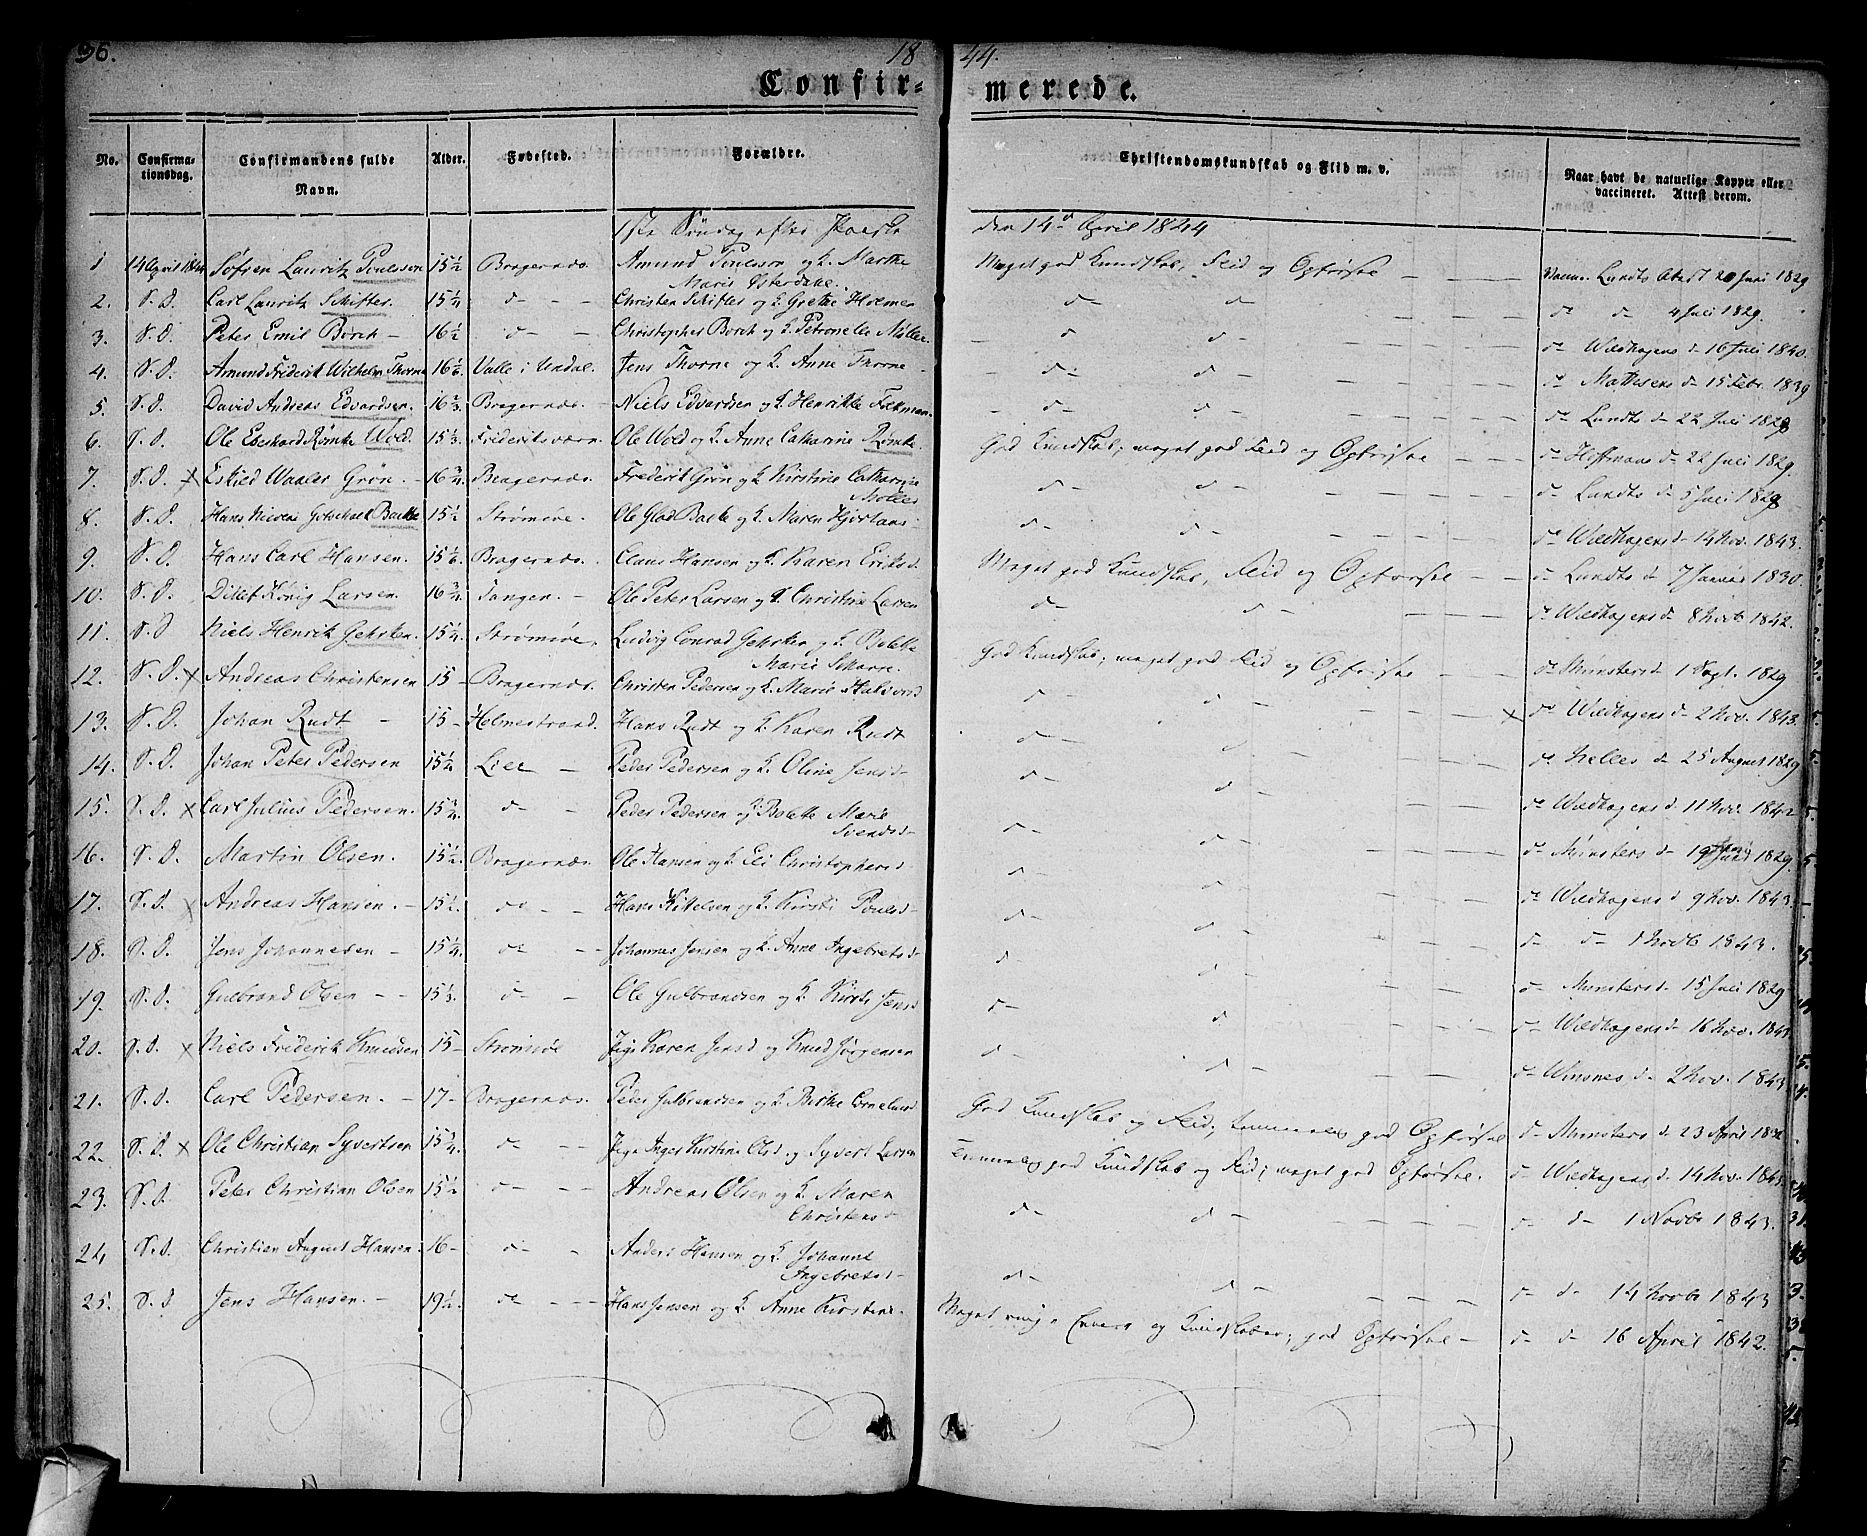 96. 18 44.
Confir= merede.
No. Confirma-tionsdag. Confirmandens fulde Navn. Alder. Fødested. Forældre. Christendomskundskab og Flid m. v. Naar havt de naturlige Kopper eller vaccineret. Attest derom.
1ste Søndag efter Paaske den 14de April 1844
1 14 April 1844 Lauritz Poulsson 15 1/2 Bragernæs. Amund Poulsson og K. Marthe Marie Østerdahl. Meget god Kundskab, Flid og Opførsel — — Vaccin. Lundts Attest 20 Juni 1829
2. S. D. Carl Lauritz Schifter. 15 1/4 d— Christen Schifter og K. Grethe Holmer d— d— — — d— d— 4 Juli 1829.
3. S. D. Peter Emil Borch — 16 1/2 d— Christopher Borch og K. Petronelle Møller. d d— — — d— Wildhagens d— 16 Juli 1840.
4. S. D. Amund Friderik Wilhelm Thorne 16 1/6 Valle i Undal. Jens Thorne og K. Anne Thorne — d— d— — — d— Mathisens d— 15 Febr. 1839
5. S. D. David Andreas Edvardsen. 16 2/3 Bragernæs. Niels Edvardsen og K. Henrikke Folkman. d— d— — — d— Lundts d— 22 Juli 1829
6. S. D. Ole Eberhard Rømke Wold. 15 1/3 Frideriksværn. Ole Wold og K. Anne Catharine Rømke. God Kundskab; meget god Flid og Opførsel — — d— Hoffmans d— 22 Juli 1829.
7. S. D. x Eskild Waaler Grøn. 16 3/4 Bragernæs. Frederik Grøn og K. Kirstine Catharine Møller d— d— — — d— Lundts d— 5 Juli 1829
8. S. D. Hans Nicolai Gotschalk Bache 15 1/2 Strømsøe. Ole Glad Bache og K. Maren d— d— — — d— Wildhagens d— 14 Nov. 1843.
9. S. D. Hans Carl Hansen. 15 1/6 Bragernæs. Claus Hansen og K. Karen Eriksd. Meget god Kundskab, Flid og Opførsel — — d— Lundts d— 7 Januar 1830.
10. S. D. Ditlef König Larsen. 16 3/4 Tangen. — Ole Peter Larsen og K. Christine Larsen d— d— — — d— Wildhagens d— 8 Novb 1842.
11. S. D Niels Henrik Gehrken. 15 1/4 Strømsøe. Ludvig Conrad Gehrken og K. Bolette Marie God Kundskab; meget god Flid og Opførsel — — d— Münsters d— 1 Sept. 1829
12. S. D. x Andreas Christensen 15 — Bragernæs. Christen Pedersen og K. Marie Halvord d— d— — — d— Wildhagens d— 2 Nov. 1843.
13. S. D. Johan Rudt — 15 — Holmestrand. Hans Rudt og K. Karen Rudt d— d— — — x d— Helles d— 25 August 1829
14. S. D. Johan Peter Pedersen 15 1/4 Lier — Peder Pedersen og K. Oline Jensd— d— d— — — d— Wildhagens d— 11 Nov. 1842
15. S. D. x Carl Julius Pedersen. 15 3/4 d— — Peder Pedersen og K. Bolette Marie Svendsd— d— d— — — d— Münsters d— 19 Juni 1829.
16. S. D. Martin Olsen. 15 1/2 Bragernæs. Ole Hansen og K. Eli Christophersd— d— d— — — d— Wildhagens d 9 Nov. 1843.
17. S. D. x Andreas Hansen. — 15 1/2 do — Hans Kittelsen og K. Kirsti Poulsd— d— d— — — d— d— 1 Novb 1843.
18. S. D. Jens Johannesen — 15 1/4 d— — Johannes Jensen og K. Anne Angebretsd— d— d— — — d— Münsters d— 15 Juli 1829
19. S. D. Gulbrand Olsen — — 15 1/3 d— — Ole Gulbrandsen og K. Kirsti Jensd— d— d— — — d— Wildhagens d— 16 Nov. 1843
20. S. D. x Niels Friderik Knudsen 15 — Strømsøe Pige Karen Jensd og Knud Jørgensen d— d— — — d— Winsnes d— 2 Nov. 1843
21. S. D. Carl Pedersen. — 17 — Bragernæs. Peder Gulbrandsen og K. Birthe Cornelisd God Kundskab og Flid; temmelig god Opførsel d— Münsters d— 23 April
22. S. D. x Ole Christian Syvertsen 15 3/4 d— — Pige Inger Kirstine Olsd og Syvert Larsen Temmelig god Kundskab og Flid; meget god Opførsel. d— Wildhagens d— 14 Nov. 1843
23. S. D. Peter Christian Olsen 15 1/2 d— — Andreas Olsen og K. Maren Christensd— d— d— — — d— d— 1 Novb 1843.
24 S. D. Christian August Hansen. 16 — d— — Anders Hansen og K. Johanne Angebretsd— d— d— — — d— d— 14 Novb 1843
25. S. D Jens Hansen. — 19 1/2. d— — Hans Jensen og K. Anne Kirstine. Meget ringe og Kundskaber, god Opførsel — d— d— 16 April 1842.